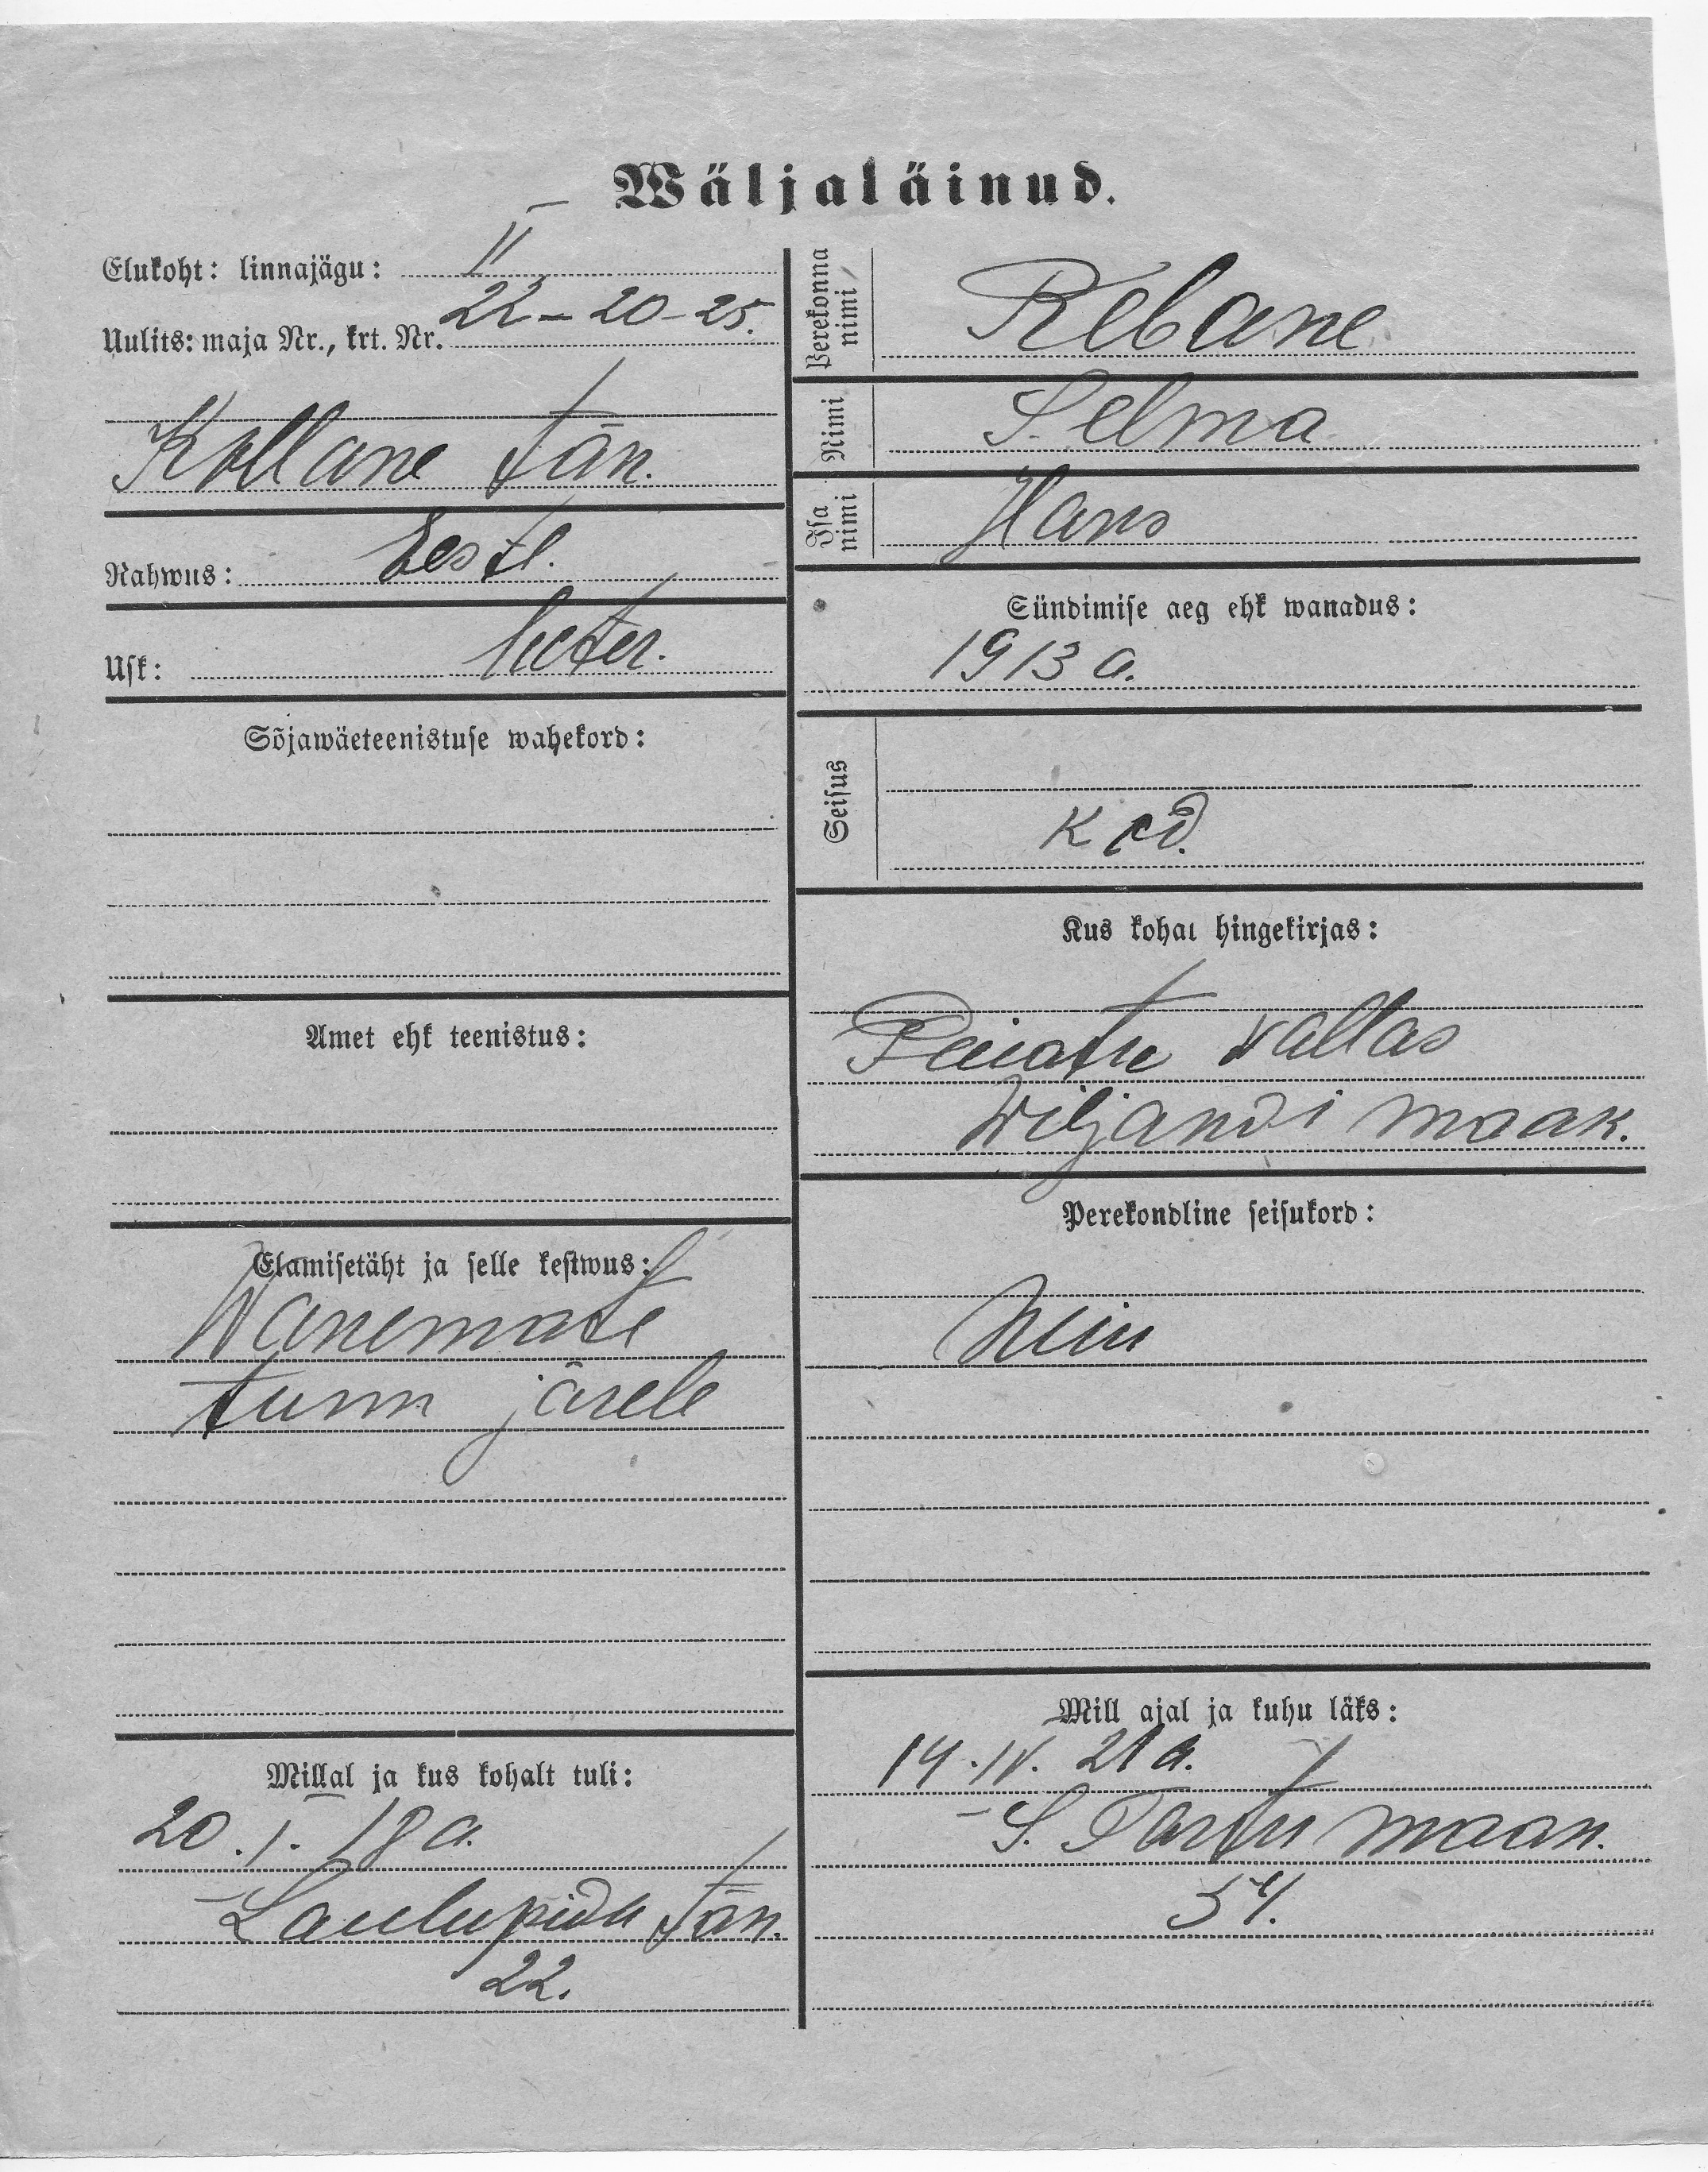 Wäljaläinud.
Elukoht: linnajägu: II
Uulits: maja Nr., krt. Nr. 22-20-25.
Kollane tän.
Rahwus: Eestl.
Usk: luter.
Sõjawäeteenistuse wahekord:
Amet ehk teenistus:
Elamisetäht ja selle kestwus:
Wanemate
tunn järele
Millal ja kus kohalt tuli:
20.I.18 a.
Laulupidu tän.
22.
Perekonna nimi Rebane
Nimi Selma
Isa nimi Hans
Sündimise aeg ehk wanadus:
1913 a.
Seisus
Kod.
Kus kohal hingekirjas:
vallas
Wiljandi maak.
Perekondline seisukord:
Neiu
Mill ajal ja kuhu läks:
14.IV. 21 a.
S. Tartu maan.
54.